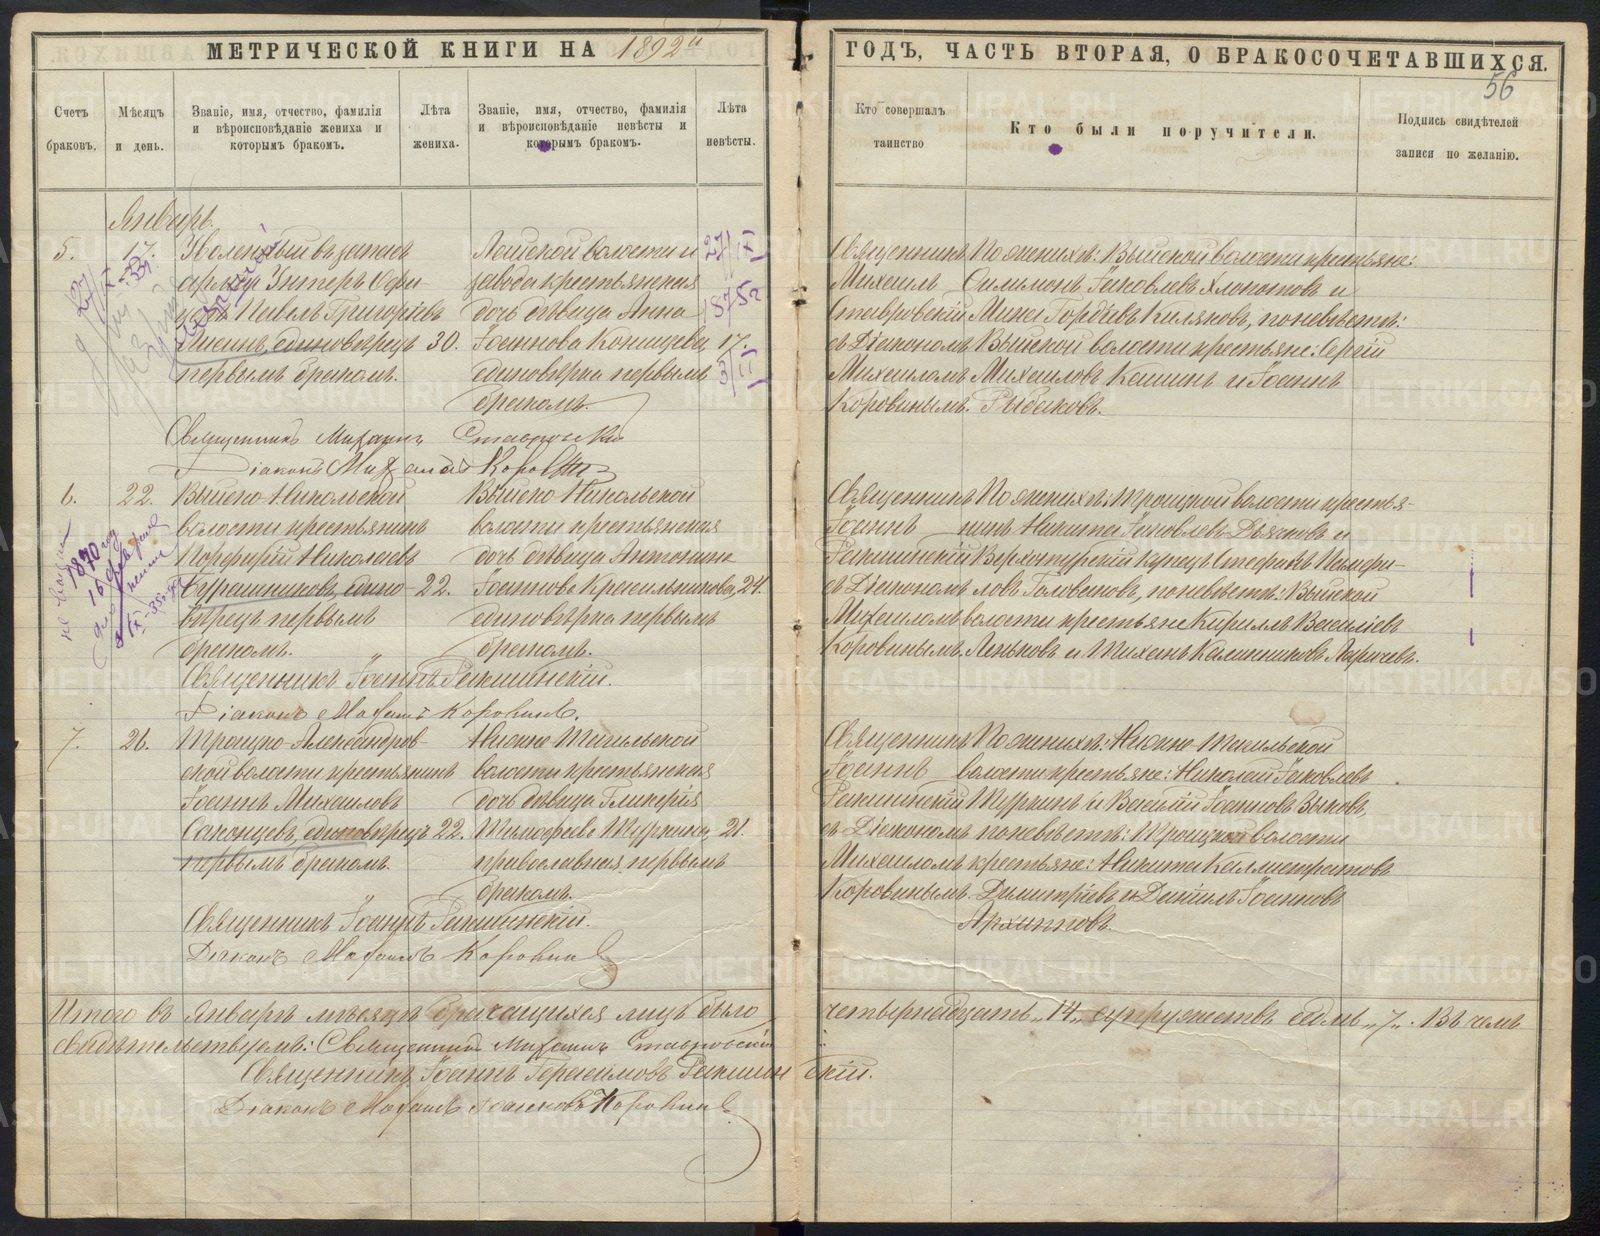 МЕТРИЧЕСКОЙ КНИГИ НА 1892й
ГОДЪ, ЧАСТЬ ВТОРАЯ, О БРАКОСОЧЕТАВШИХСЯ.
56
Счетъ браковъ.
Мѣсяцъ и день.
Званіе, имя, отчество, фамилія
и вѣроисповѣданіе жениха и
которымъ бракомъ.
Лѣта жениха.
Званіе, имя, отчество, фамилія
и вѣроисповѣданіе невѣсты и
которымъ бракомъ.
Лѣта невѣсты.
Кто совершалъ таинство
Кто были поручители.
Подпись свидѣтелей
записи по желанію.
Январь.
5. 17. Уволенный въ запасъ
арміи Унтеръ Офи
церъ Павелъ Григоріевъ
единовѣрецъ 30.
первымъ бракомъ.
Лайской волости и
завода крестьянская
дочь дѣвица Анна
Іоаннова 17.
единовѣрка первымъ
бракомъ.
Священникъ
Михаилъ
Ставровскій
съ Діакономъ
Михаиломъ
Коровинымъ.
По женихѣ: Выйской волости крестьяне:
Филимонъ Іаковлевъ Хлопотовъ и
Мина Гордіевъ Киляковъ, по невѣстѣ:
Выйской волости крестьяне: Сергій
Михаиловъ Кашинъ и Іоаннъ
Рыбаковъ.
Священникъ Михаилъ Ставровскій
Діаконъ Михаилъ Коровинъ
6. 22. Выйско-Никольской
волости крестьянинъ
Порфирій Николаевъ
Бурашниковъ, едино- 22.
вѣрецъ первымъ
бракомъ.
Выйско-Никольской
волости крестьянская
дочь дѣвица Антонина
Іоаннова Красильникова, 24.
единовѣрка первымъ
бракомъ.
Священникъ
Іоаннъ
Ракшинскій
съ Діакономъ
Михаиломъ
Коровинымъ.
По женихѣ: Троицкой волости крестья-
нинъ Никита Іаковлевъ Дьячковъ и
Верхотурскій купецъ Стефанъ Памфи-
ловъ Головановъ, по невѣстѣ: Выйской
волости крестьяне Кириллъ Василіевъ
Леньковъ и Тихонъ Калинниковъ Ларичевъ.
Священникъ Іоаннъ Ракшинскій.
Діаконъ Михаилъ Коровинъ.
7. 26. Троицко-Александров-
ской волости крестьянинъ
Іоаннъ Михаиловъ
Саконцевъ, единовѣрецъ 22.
первымъ бракомъ.
Нижне-Тагильской
волости крестьянская
дочь дѣвица Гликерія
Тимофеева Шуркина, 21.
православная, первымъ
бракомъ.
Священникъ
Іоаннъ
Ракшинскій
съ Діакономъ
Михаиломъ
Коровинымъ.
По женихѣ: Нижне-Тагильской
волости крестьяне: Николай Іаковлевъ
Шуркинъ и Василій Іоанновъ Зыковъ,
по невѣстѣ: Троицкой волости
крестьяне: Никита Каллистратовъ
Димитріевъ и Даніилъ Іоанновъ
Архиповъ.
Священникъ Іоаннъ Ракшинскій.
Діаконъ Михаилъ Коровинъ
Итого въ Январѣ мѣсяцѣ брачащихся лицъ было четырнадцать „14„ супружествъ седмь „7„. Въ чемъ
свидѣтельствуемъ: Священникъ Михаилъ Ставровскій
Священникъ Іоаннъ Герасимовъ Ракшинскій.
Діаконъ Михаилъ Коровинъ